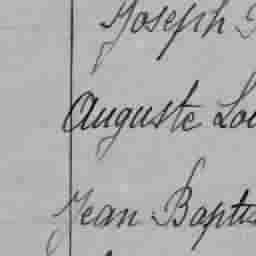 Joseph
Auguste Lou
Jean Baptis